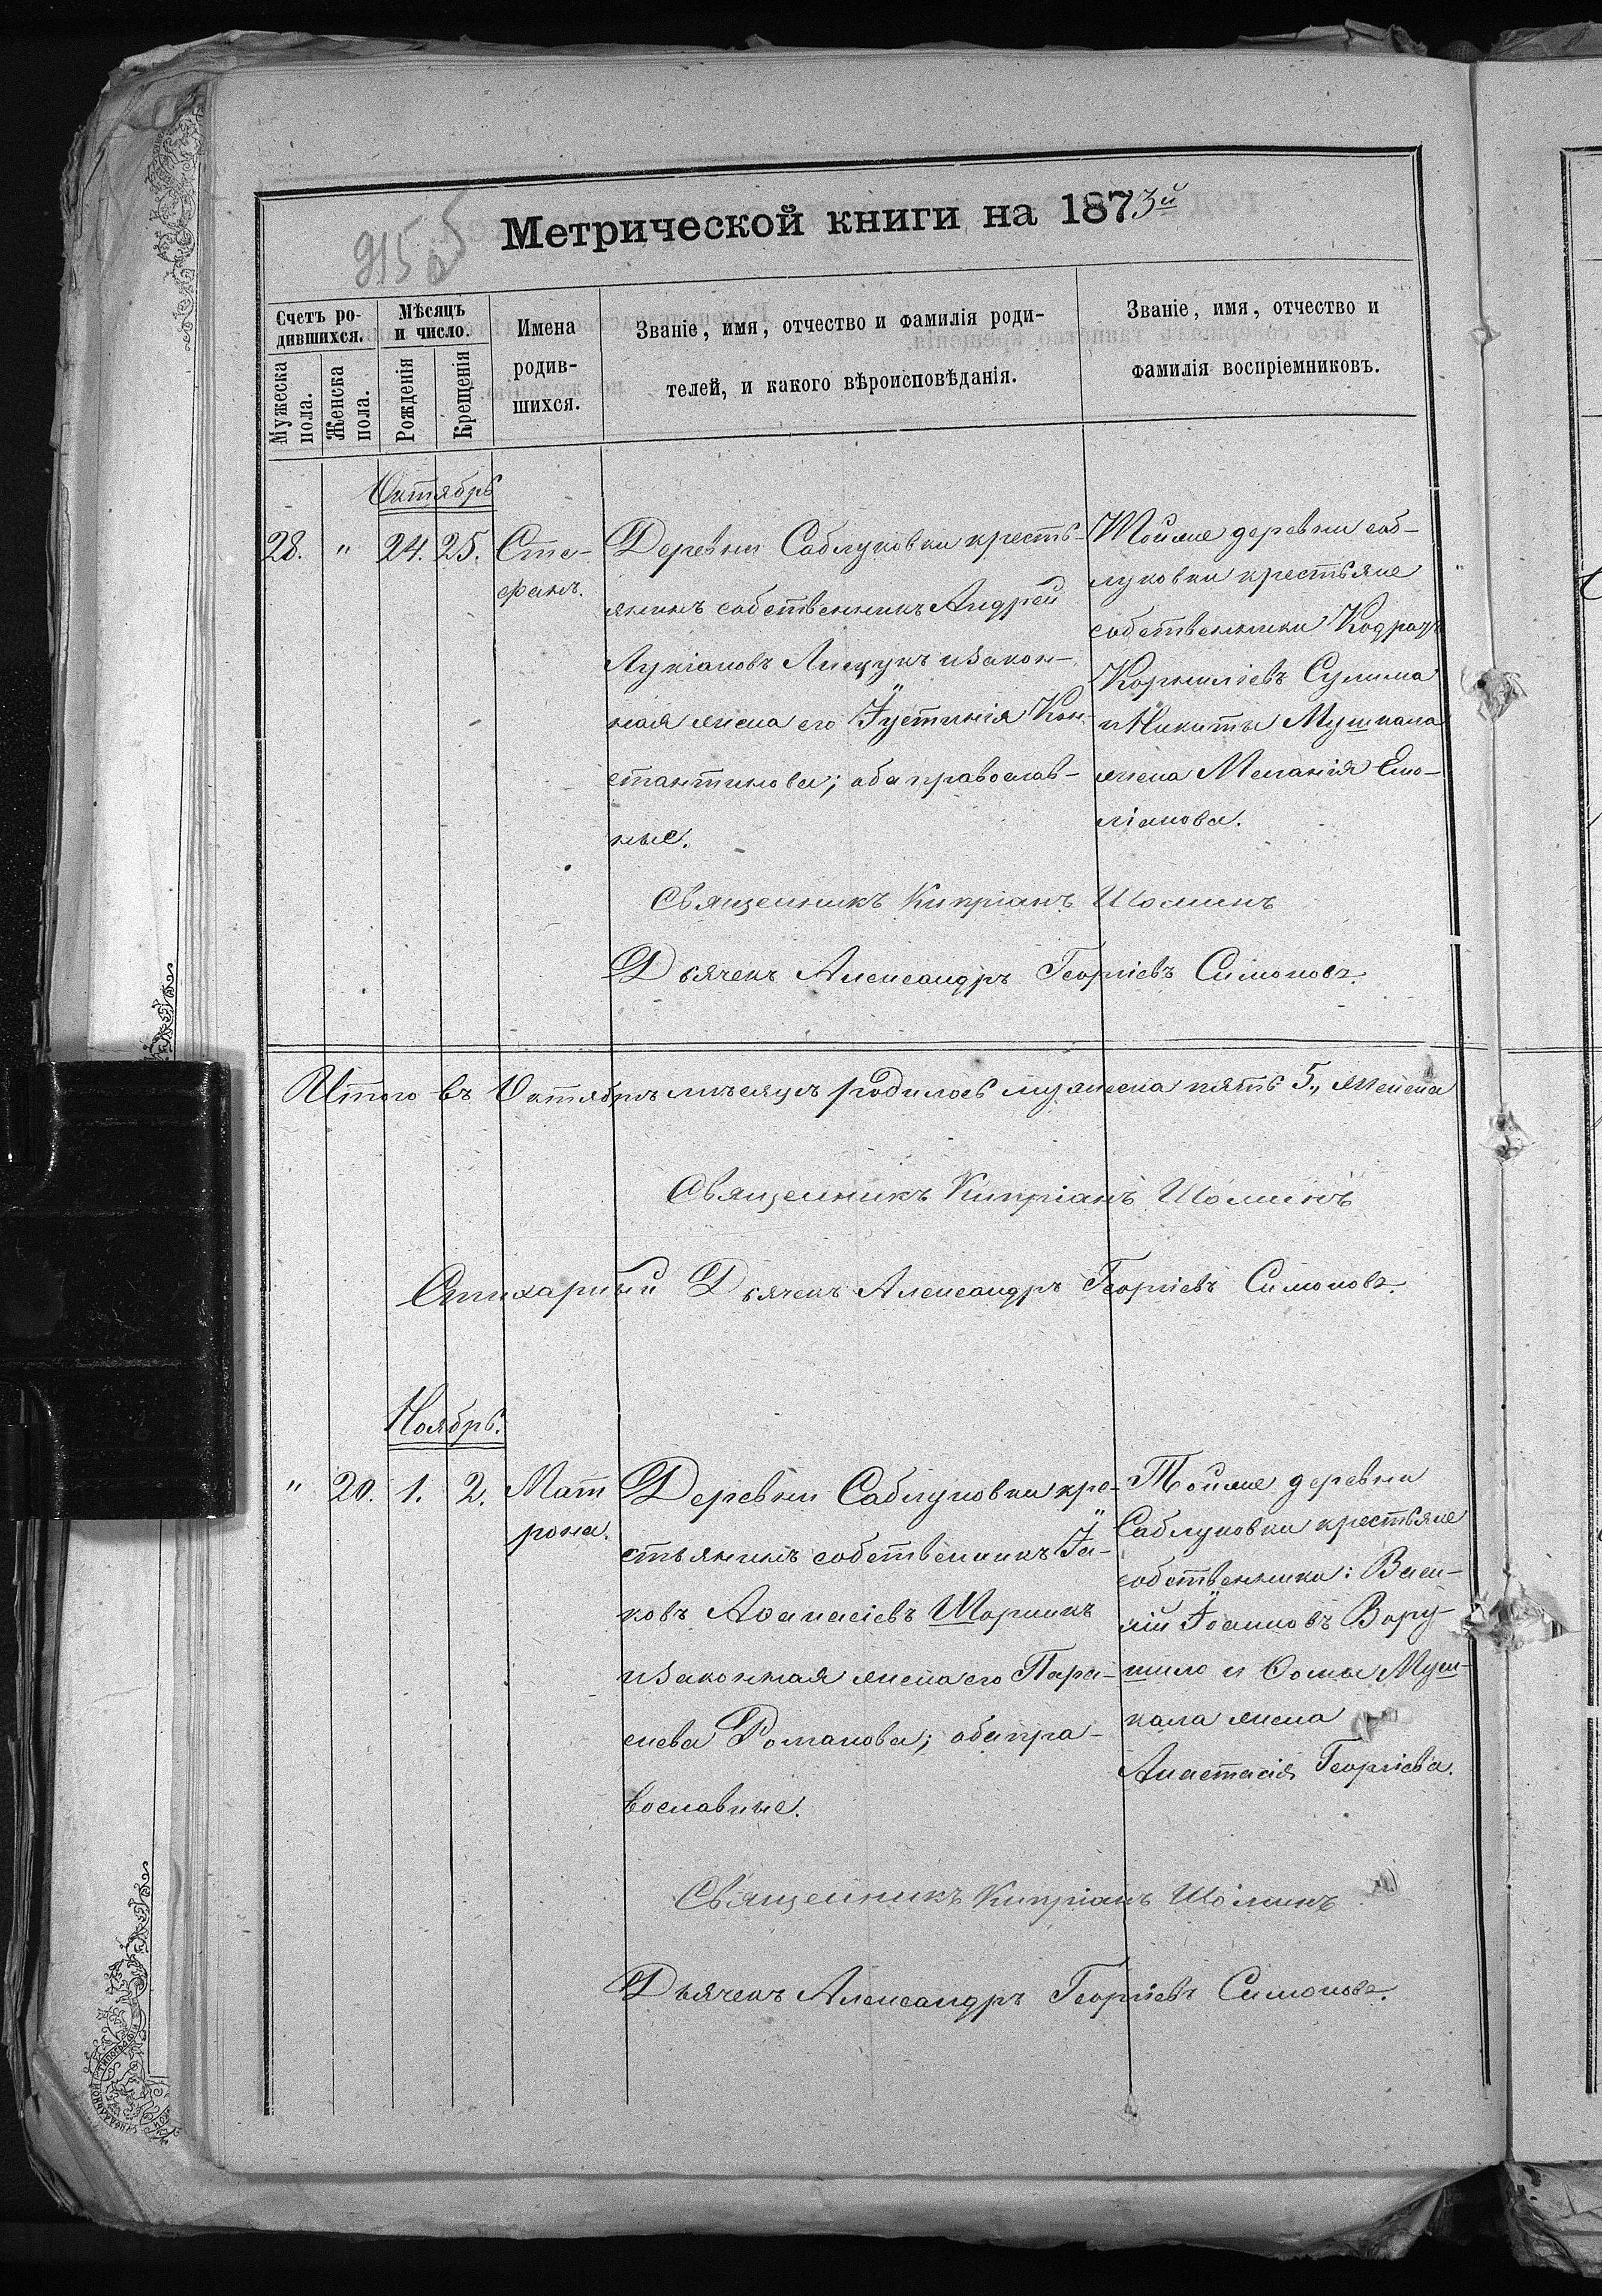 Метрической книги на 1873й
915
Счетъ ро-
дившихся.
Мѣсяцъ
и число.
Имена
родив-
шихся.
Званіе, имя, отчество и фамилія роди-
телей, и какого вѣроисповѣданія.
Званіе, имя, отчество и
фамилія воспріемниковъ.
Мужеска
пола.
Женска
пола.
Рожденія
Крещенія
Октябрь
28. " 24. 25. Сте-
фанъ.
Деревни Саблуковки кресть-
янинъ собственникъ Андрей
Лукіановъ Лищукъ и закон-
ная жена его Іустинія Кон-
стантинова; оба православ-
ные.
Тойже деревни Саб-
луковки крестьяне
собственники Кодратъ
Корниліевъ Сулима
и Никиты Мушкала
жена Меланія Еме-
ліанова.
Священникъ Кипріанъ Шоминъ
Дьячекъ Александръ Георгіевъ Симоновъ.
Итого въ Октябрѣ мѣсяцѣ родилось мужеска пять 5., женска
Священникъ Кипріанъ Шоминъ
Стихарный Дьячекъ Александръ Георгіевъ Симоновъ.
Ноябрь.
" 20. 1. 2. Мат
рона.
Деревни Саблуковки кре-
стьянинъ собственникъ Іа-
ковъ Аѳанасіевъ Шорникъ
и законная жена его Пара-
скева Романова; оба пра-
вославные.
Тойже деревни
Саблуковки крестьяне
собственники: Васи-
лій Іоанновъ Вору-
шило и Ѳомы Муш-
кала жена
Анастасія Георгіева.
Священникъ Кипріанъ Шоминъ
Дьячекъ Александръ Георгіевъ Симоновъ.